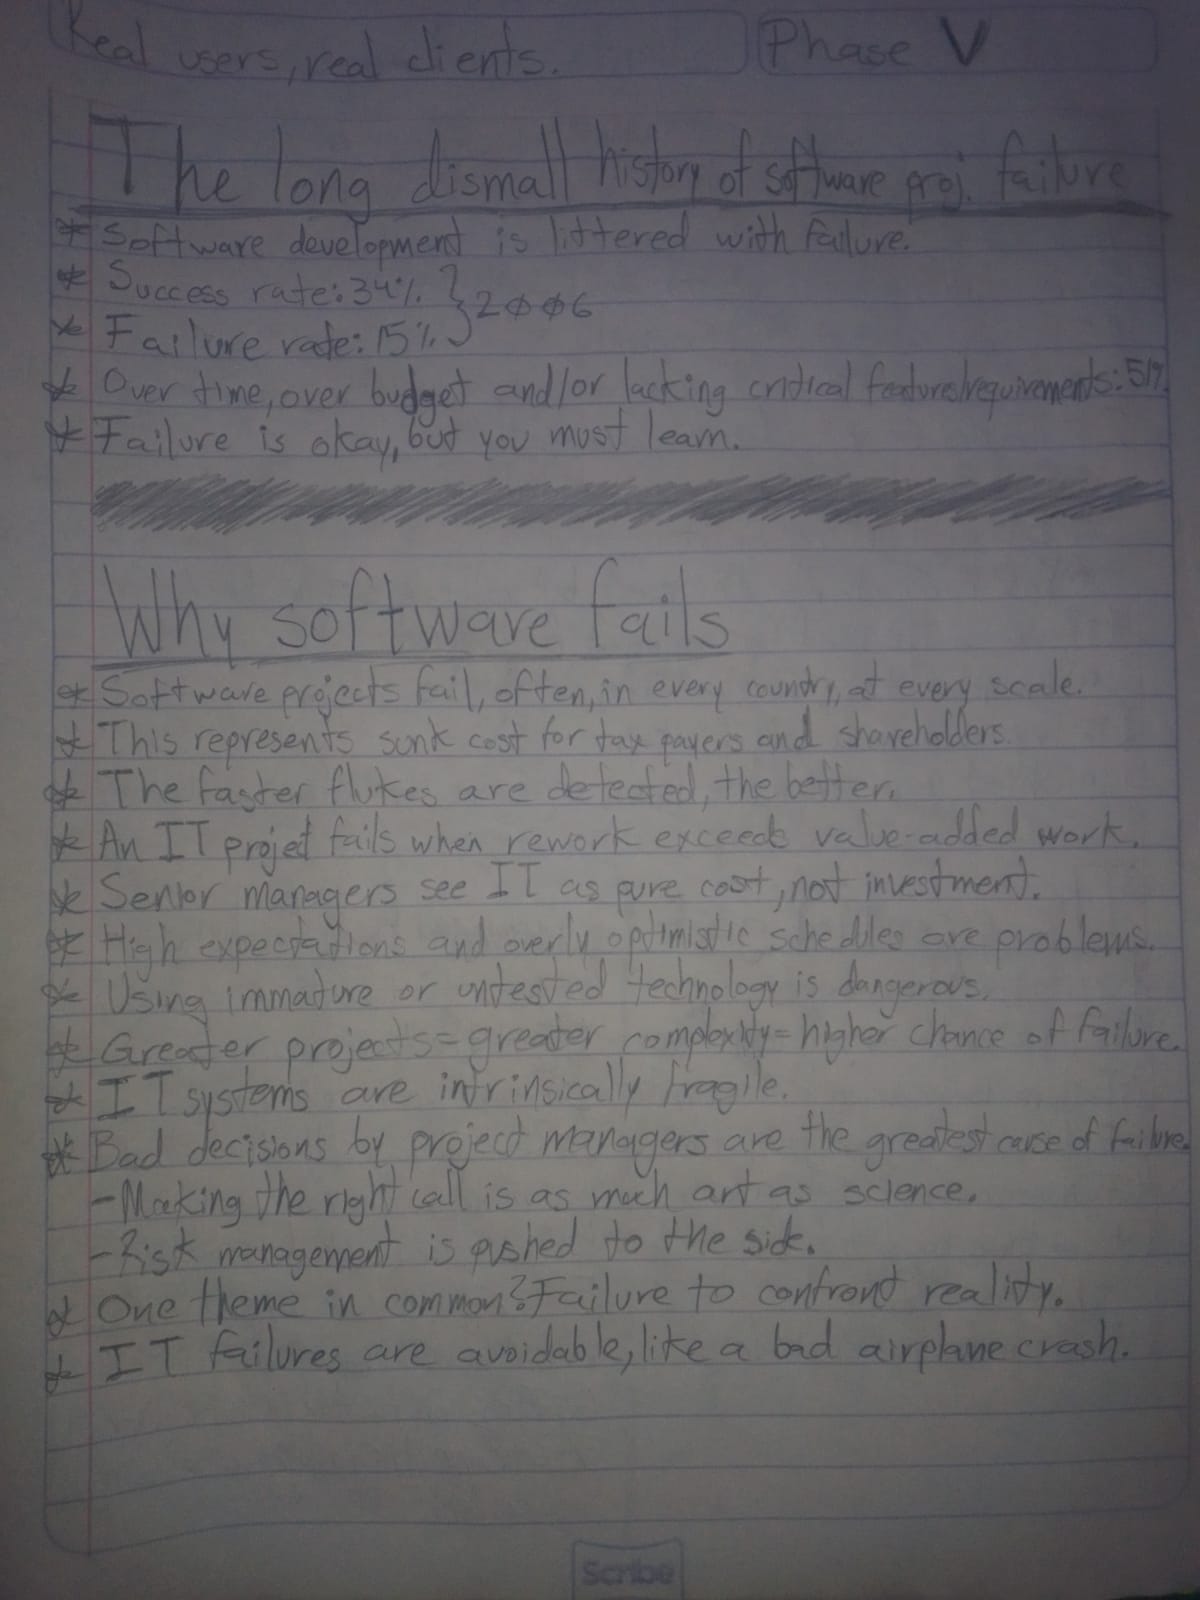 Real users, real clients.
Phase V
The long dismall history of software proj. failure
* Software development is littered with failure.
* Success rate: 34% } 2006
* Failure rate: 15%
* Over time, over budget and/or lacking critical features/requirements: 51%
* Failure is okay, but you must learn.
Why software fails
* Software projects fail, often, in every country, at every scale.
* This represents sunk cost for tax payers and shareholders.
* The faster flukes are detected, the better.
* An IT project fails when rework exceeds value-added work.
* Senior managers see IT as pure cost, not investment.
* High expectations and overly optimistic schedules are problems.
* Using immature or untested technology is dangerous.
* Greater projects = greater complexity = higher chance of failure.
* IT systems are intrinsically fragile.
* Bad decisions by project managers are the greatest cause of failure.
- Making the right call is as much art as science.
- Risk management is pushed to the side.
* One theme in common? Failure to confront reality.
* IT failures are avoidable, like a bad airplane crash.
Scribe